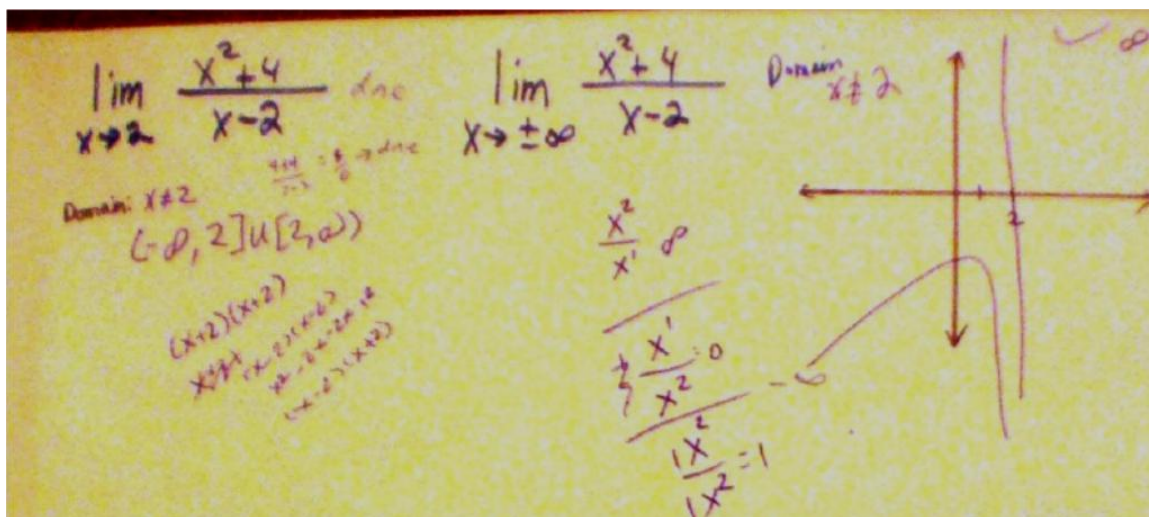 lim x→2 (x²+4)/(x-2) dne
(4+4)/(2-2) = 8/0 → dne
Domain: x≠2
(-∞, 2]∪[2,∞)
(x+2)(x+2)
(x-2)(x+2)
lim x→±∞ (x²+4)/(x-2)
x²/x¹ ∞
x¹/x² = 0
1x²/1x² = 1
Domain
x≠2
∞
2
-∞